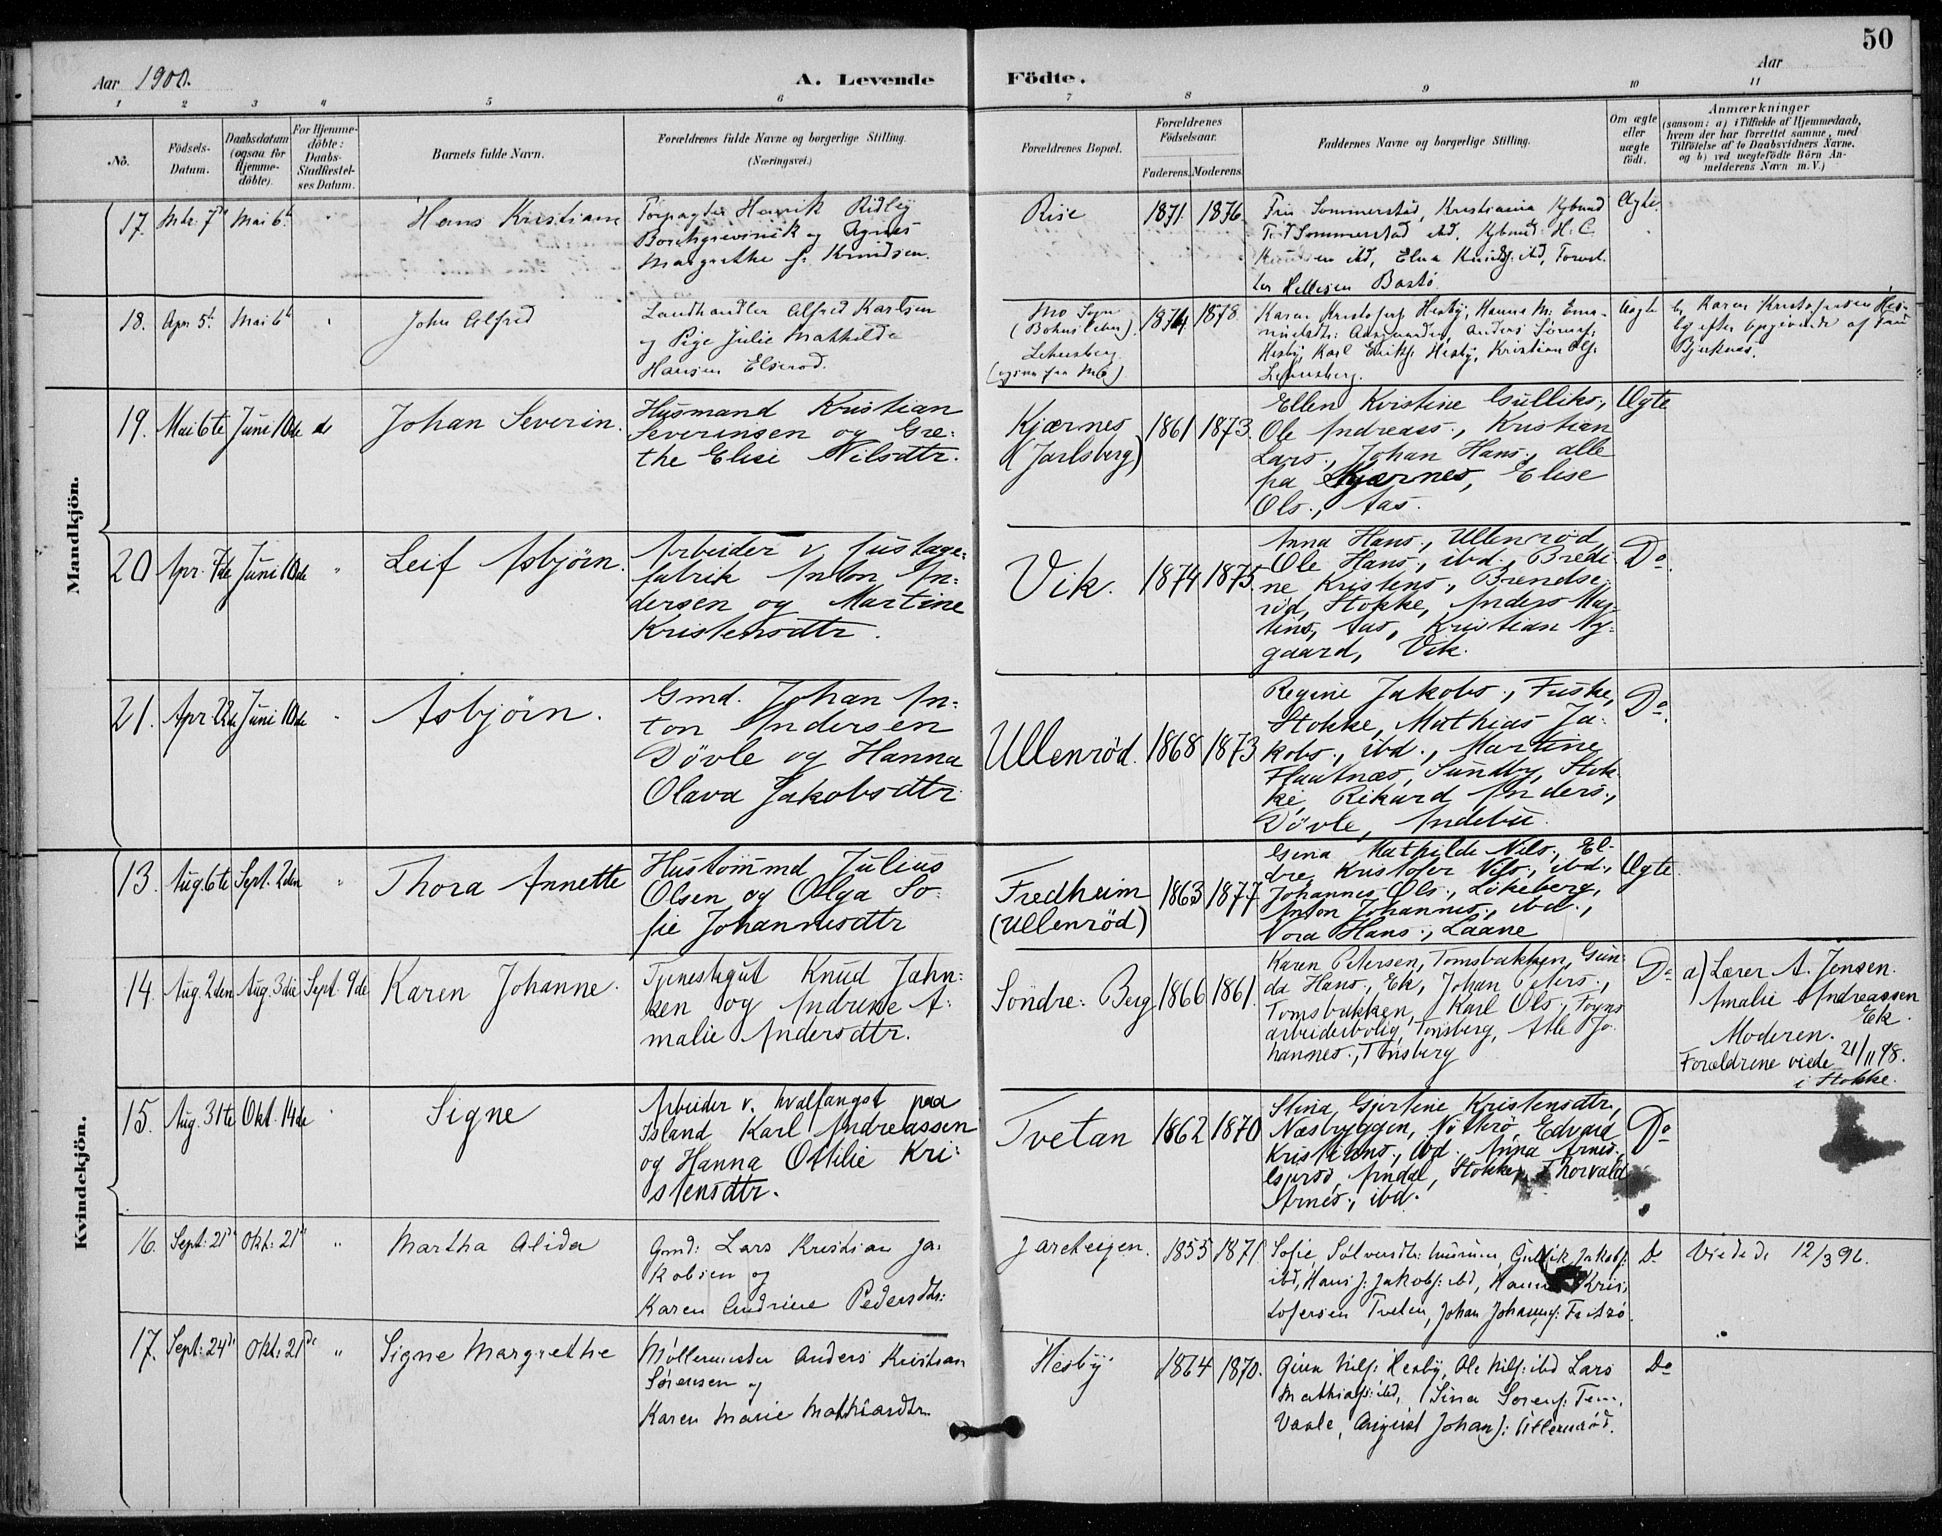 50
Aar 1900.
A. Levende Födte.
Aar
1 2 3 4 5 6 7 8 9 10 11
No.
Födsels-
Datum.
Daabsdatum
(ogsaa for
Hjemme-
döbte).
For Hjemme-
döbte:
Daabs-
Stadfæstel-
ses Datum.
Barnets fulde Navn.
Forældrenes fulde Navne og borgerlige Stilling.
(Næringsvei.)
Forældrenes Bopæl.
Forældrenes
Födselsaar.
Faderens. Moderens.
Faddernes Navne og borgerlige Stilling.
Om ægte
eller
uægte
födt.
Anmærkninger
(saasom: a) i Tilfælde af Hjemmedaab,
hvem der har forrettet samme, med
Tilföielse af to Daabsvidners Navne,
og b) ved uægtefödte Börn An-
melderens Navn m. V.)
Mandkjön.
17. 7de Mai 6te
Hans Kristian
Henrik Ridley
og Agnes
Margrethe Knudsen.
Rise
1871 1876
Sommerstad, Kristiania
Sommerstad ibd. H. C.
ibd, Elna ibd,
Hellesen Bastö
Ægte.
18. Apr 5te Mai 6te
John Alfred
Landhandler Alfred Karlsen
og Pige Julie Mathilde
Hansen Elserod.
Mo Sogn
(Bohuslehn).
1874 1878
Karen Hesby, Hanna M:
Anders
Hesby, Karl Hesby, Kristian Ols:
Uægte
b, Karen Kristofersen Hes-
by efter Opgivende af Fru
Bjerknæs.
19. Mai 6te Juni 10de
Johan Severin.
Husmand Kristian
Severinsen og Gre-
the Elise Nilsdtr.
Kjærnes
(Jarlsberg)
1861 1873.
Ellen Kristine Gulliks.,
Ole Andreass., Kristian
Lars., Johan Hans., alle
pa Kjærnes, Elise
Ols., Aas.
Ægte
20 Apr. 7de Juni 10de "
Leif Asbjörn.
Arbeider v.
fabrik Anton An-
dersen og Martine
Kristensdtr.
Vik.
1874 1875.
Anna Hans., Ullenröd
Ole Hans., ibd., Bredi-
ne Kristens., Brendse-
röd, Stokke, Anders Mar-
tins, Aas, Kristian Ny-
gaard, Vik.
Do.
21. Apr. 22de Juni 10de "
Asbjörn.
Gmd. Johan An-
ton Andersen
Dövle og Hanna
Olava Jakobsdtr.
Ullenröd.
1868 1873
Regine Jakobs.,
Stokke, Mathias Ja-
kobs., ibd., Martine
Flaatnæs, Sundby, Stok-
ke, Rikard Anders.,
Dövle, Andebu.
Do.
Kvindekjön.
13. Aug. 6te Sept. 2den "
Thora Annette
Hustömmd Julius
Olsen og Olga So-
fie Johannesdtr
Fredheim
(Ullenröd)
1863 1877
Gina Mathilde Nils.,
Kristofer Nils., ibd.,
Johannes Ols., Lökeberg,
Anton Johannes., ibd.,
Nora Hans., Laane
Ægte
14. Aug. 2den Aug. 3die Sept. 9de
Karen Johanne.
Tjenestegut Knud Jahn-
sen og Andrine A-
malie Andersdtr.
Söndre: Berg
1866 1861.
Karen Petersen, Tomsbakken, Gun-
da Hans., Ek, Johan Peters.,
Tomsbakken, Karl Ols.,
arbeiderbolig, Tönsberg, Jo-
hannes., Tönsberg
Do
a) Lærer A. Jensen.
Amalie Andreassen
Ek.
Moderen.
Forældrene viede 21/11 98.
i Stokke.
15. Aug. 31te Okt. 14de
Signe
Arbeider v. hvalfangst paa
Island Karl Andreassen
og Hanna Otilie Kri-
stensdtr.
Tvetan
1862 1870
Stina Gjertine Kristensdtr,
Næsbryggen, Nötterö, Edvard
Kristians., ibd., Anna Arnes.,
Stokke, Thorvald
Arnes., ibd.
Do
16. Sept: 21de Okt: 21de "
Martha Alida
Gmd: Lars Kristian Ja-
kobsen og
Karen Andrine Pedersdtr:
Jareteigen.
1855 1871.
Sofie Gullik Jakobs:
ibd, Hans J: Jakobs: ibd, Hanna Kris-
tofersen Tveten, Johan
Do
Viede d. 12/3 96.
17. Sept: 24de Okt: 21de "
Signe Margrethe
Møllermester Anders Kristian
Sörensen og
Karen Marie Mathiasdtr.
Hesby
1864 1870.
Nils: Hesby, Ole Nils: ibd Lars
Mathias: ibd, Sina Sörens:
Vaale, August Johans: Ullenröd.
Do